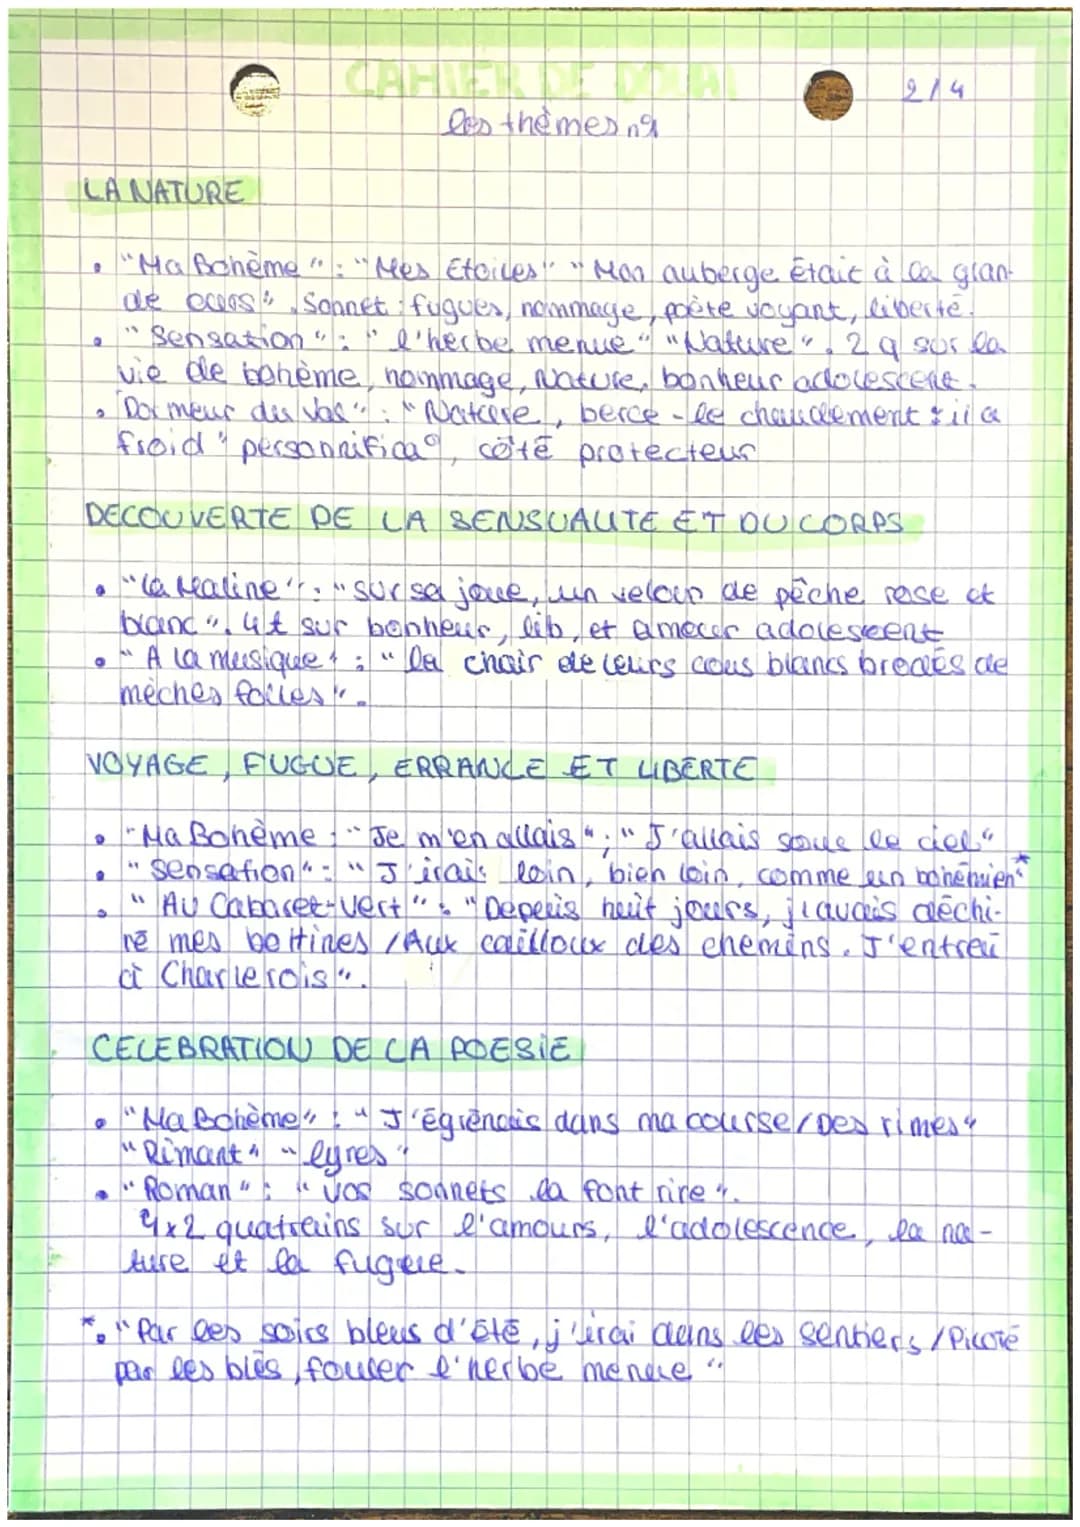 CAHIER DE DOUAI
2/4
les thèmes n°1
LA NATURE
• "Ma Bohème" : "Mes Etoiles" "Mon auberge était à la gran-
de ours". Sonnet : fugues, nommage, poète voyant, liberté.
• "Sensation" : "l'herbe menue" "Nature". 2 q sur la
vie de bohème, nommage, Nature, bonheur adolescent.
• "Dormeur du Val" : "Nature, berce-le chaudement : il a
froid" personnifica°, côté protecteur
DECOUVERTE DE LA SENSUALITE ET DU CORPS
• "La Maline" : "sur sa joue, un velour de pêche rose et
blanc". 4t sur bonheur, lib, et amour adolescent
• "A la musique" : "la chair de leurs cous blancs brodés de
mèches folles".
VOYAGE, FUGUE, ERRANCE ET LIBERTE
• "Ma Bohème : "Je m'en allais" ; "J'allais sous le ciel"
• "Sensation" : "J'irais loin, bien loin, comme un bohémien"*
• "Au Cabaret-Vert" : "Depuis huit jours, j'avais déchi-
ré mes bottines / Aux cailloux des chemins. J'entrai
à Charlerois".
CELEBRATION DE LA POESIE
• "Ma Bohème" : "J'égrénais dans ma course / Des rimes"
"Rimant" "lyres"
• "Roman" : "Vos sonnets la font rire".
4x2 quatrains sur l'amours, l'adolescence, la na-
ture et la fugue.
*• "Par les soirs bleus d'été, j'irai dans les sentiers / Picoté
par les blés, fouler l'herbe menue"